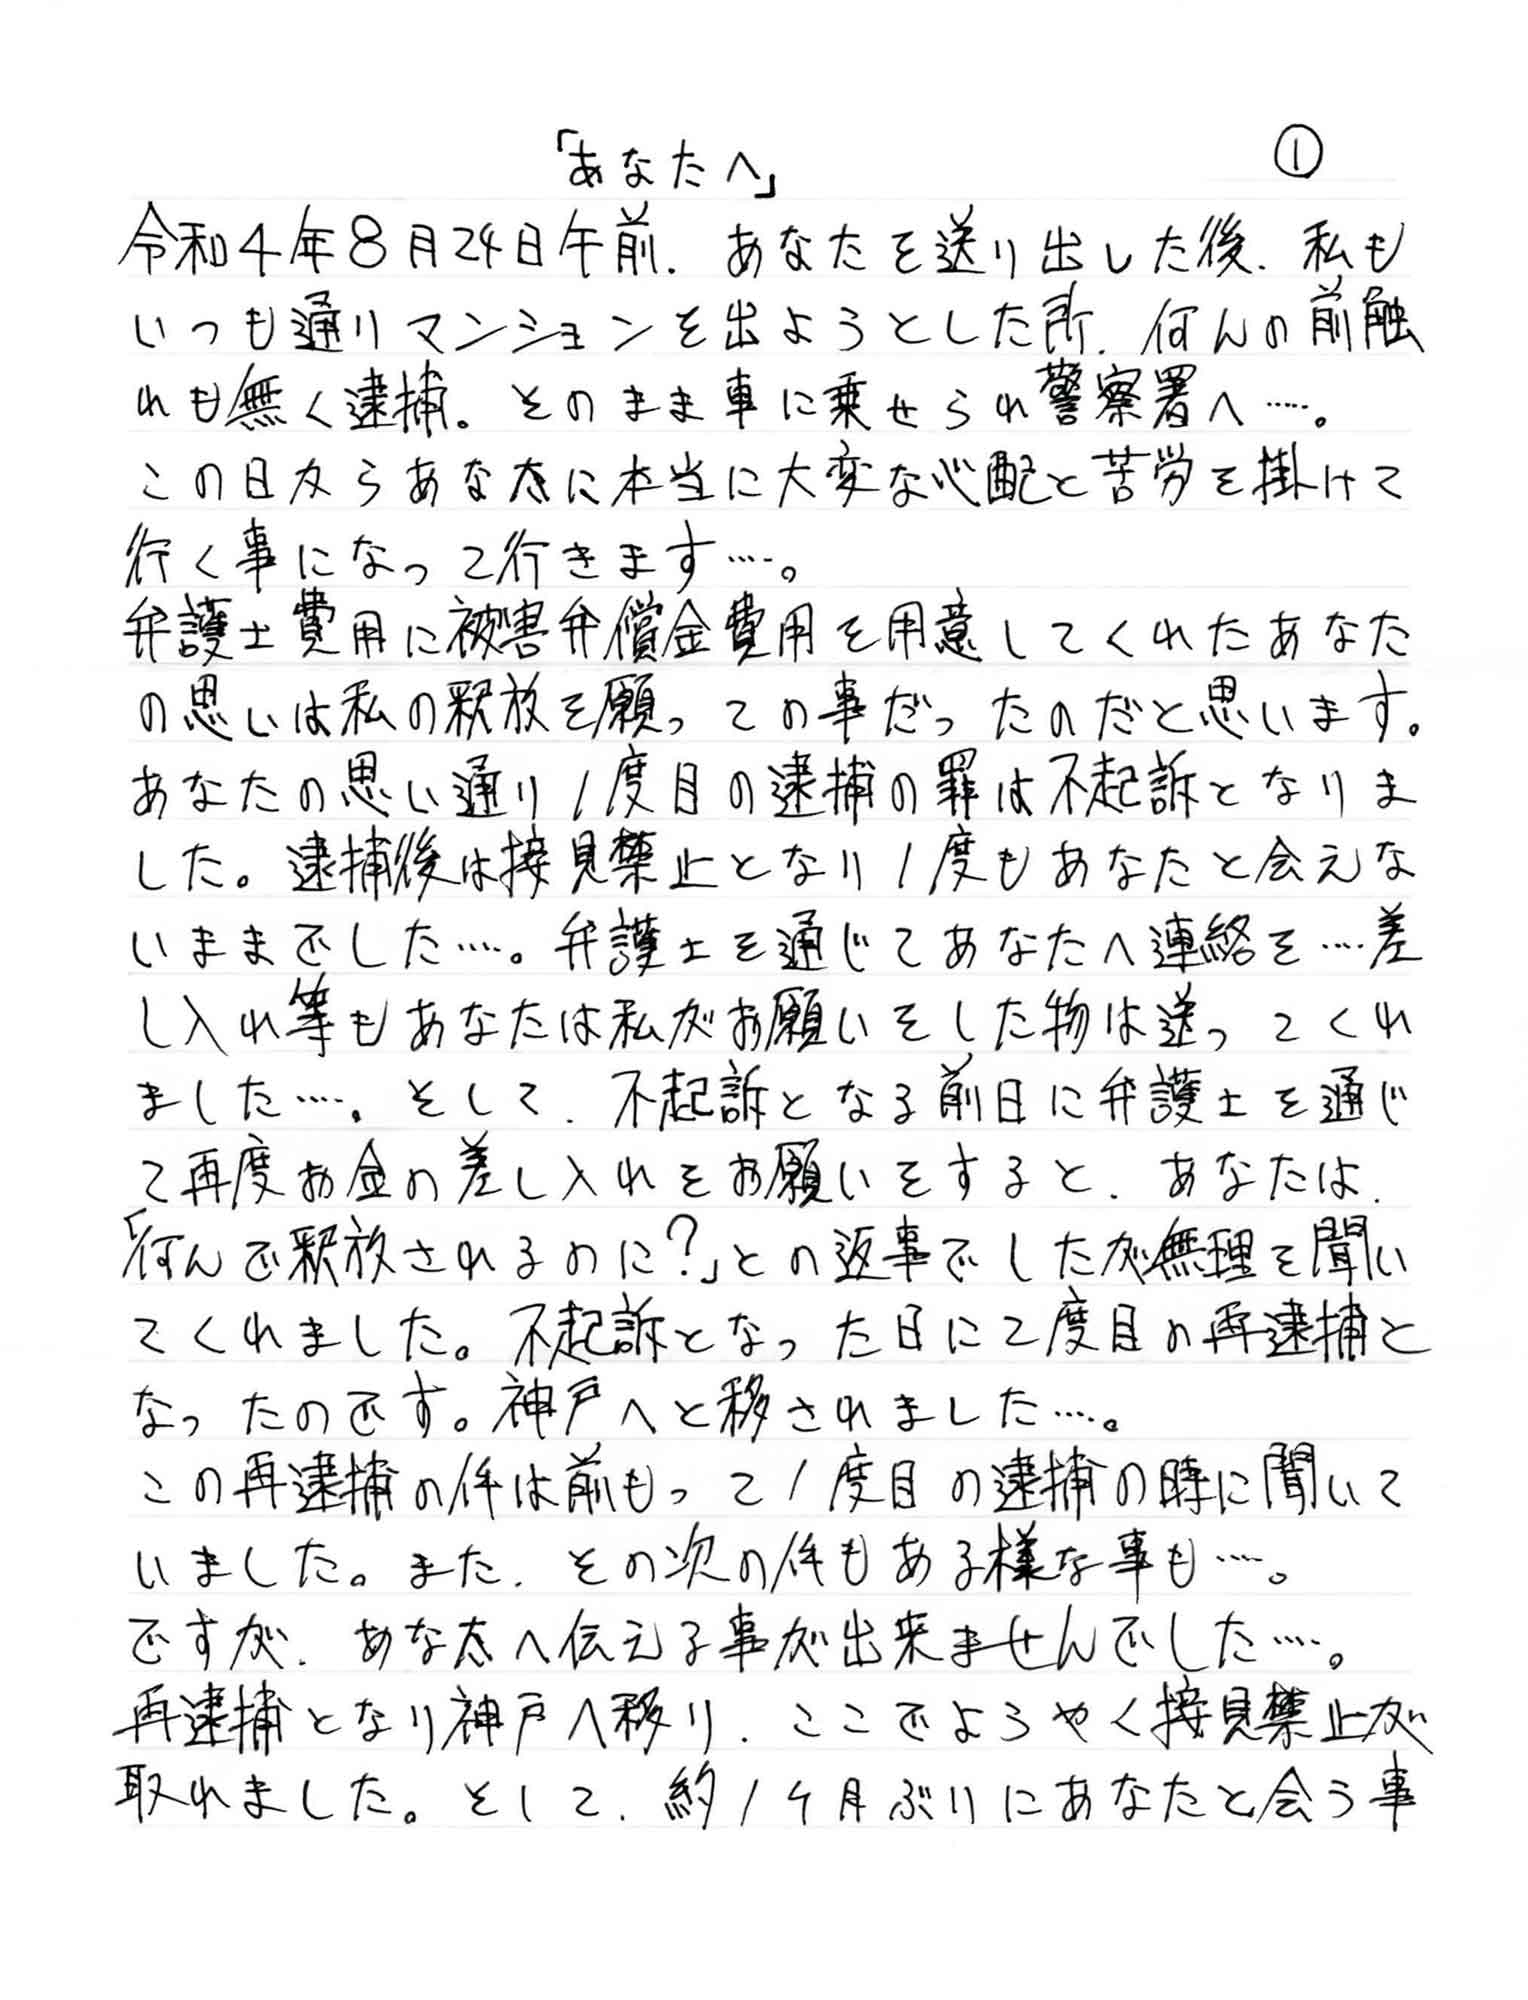 「あなたへ」 ①
令和4年8月24日午前、あなたを送り出した後、私も
いつも通りマンションを出ようとした所、何んの前触
れも無く逮捕。そのまま車に乗せられ警察署へ…。
この日からあなたに本当に大変な心配と苦労を掛けて
行く事になって行きます…。
弁護士費用に被害弁償金費用を用意してくれたあなた
の思いは私の釈放を願っての事だったのだと思います。
あなたの思い通り1度目の逮捕の罪は不起訴となりま
した。逮捕後は接見禁止となり1度もあなたと会えな
いままでした…。弁護士を通じてあなたへ連絡を…差
し入れ等もあなたは私がお願いをした物は送ってくれ
ました…。そして、不起訴となる前日に弁護士を通じ
て再度お金の差し入れをお願いをすると、あなたは、
「何んで釈放されるのに?」との返事でしたが無理を聞い
てくれました。不起訴となった日に2度目の再逮捕と
なったのです。神戸へと移されました…。
この再逮捕の件は前もって1度目の逮捕の時に聞いて
いました。また、その次の件もある様な事も…。
ですが、あなたへ伝える事が出来ませんでした…。
再逮捕となり神戸へ移り、ここでようやく接見禁止が
取れました。そして、約1ヶ月ぶりにあなたと会う事